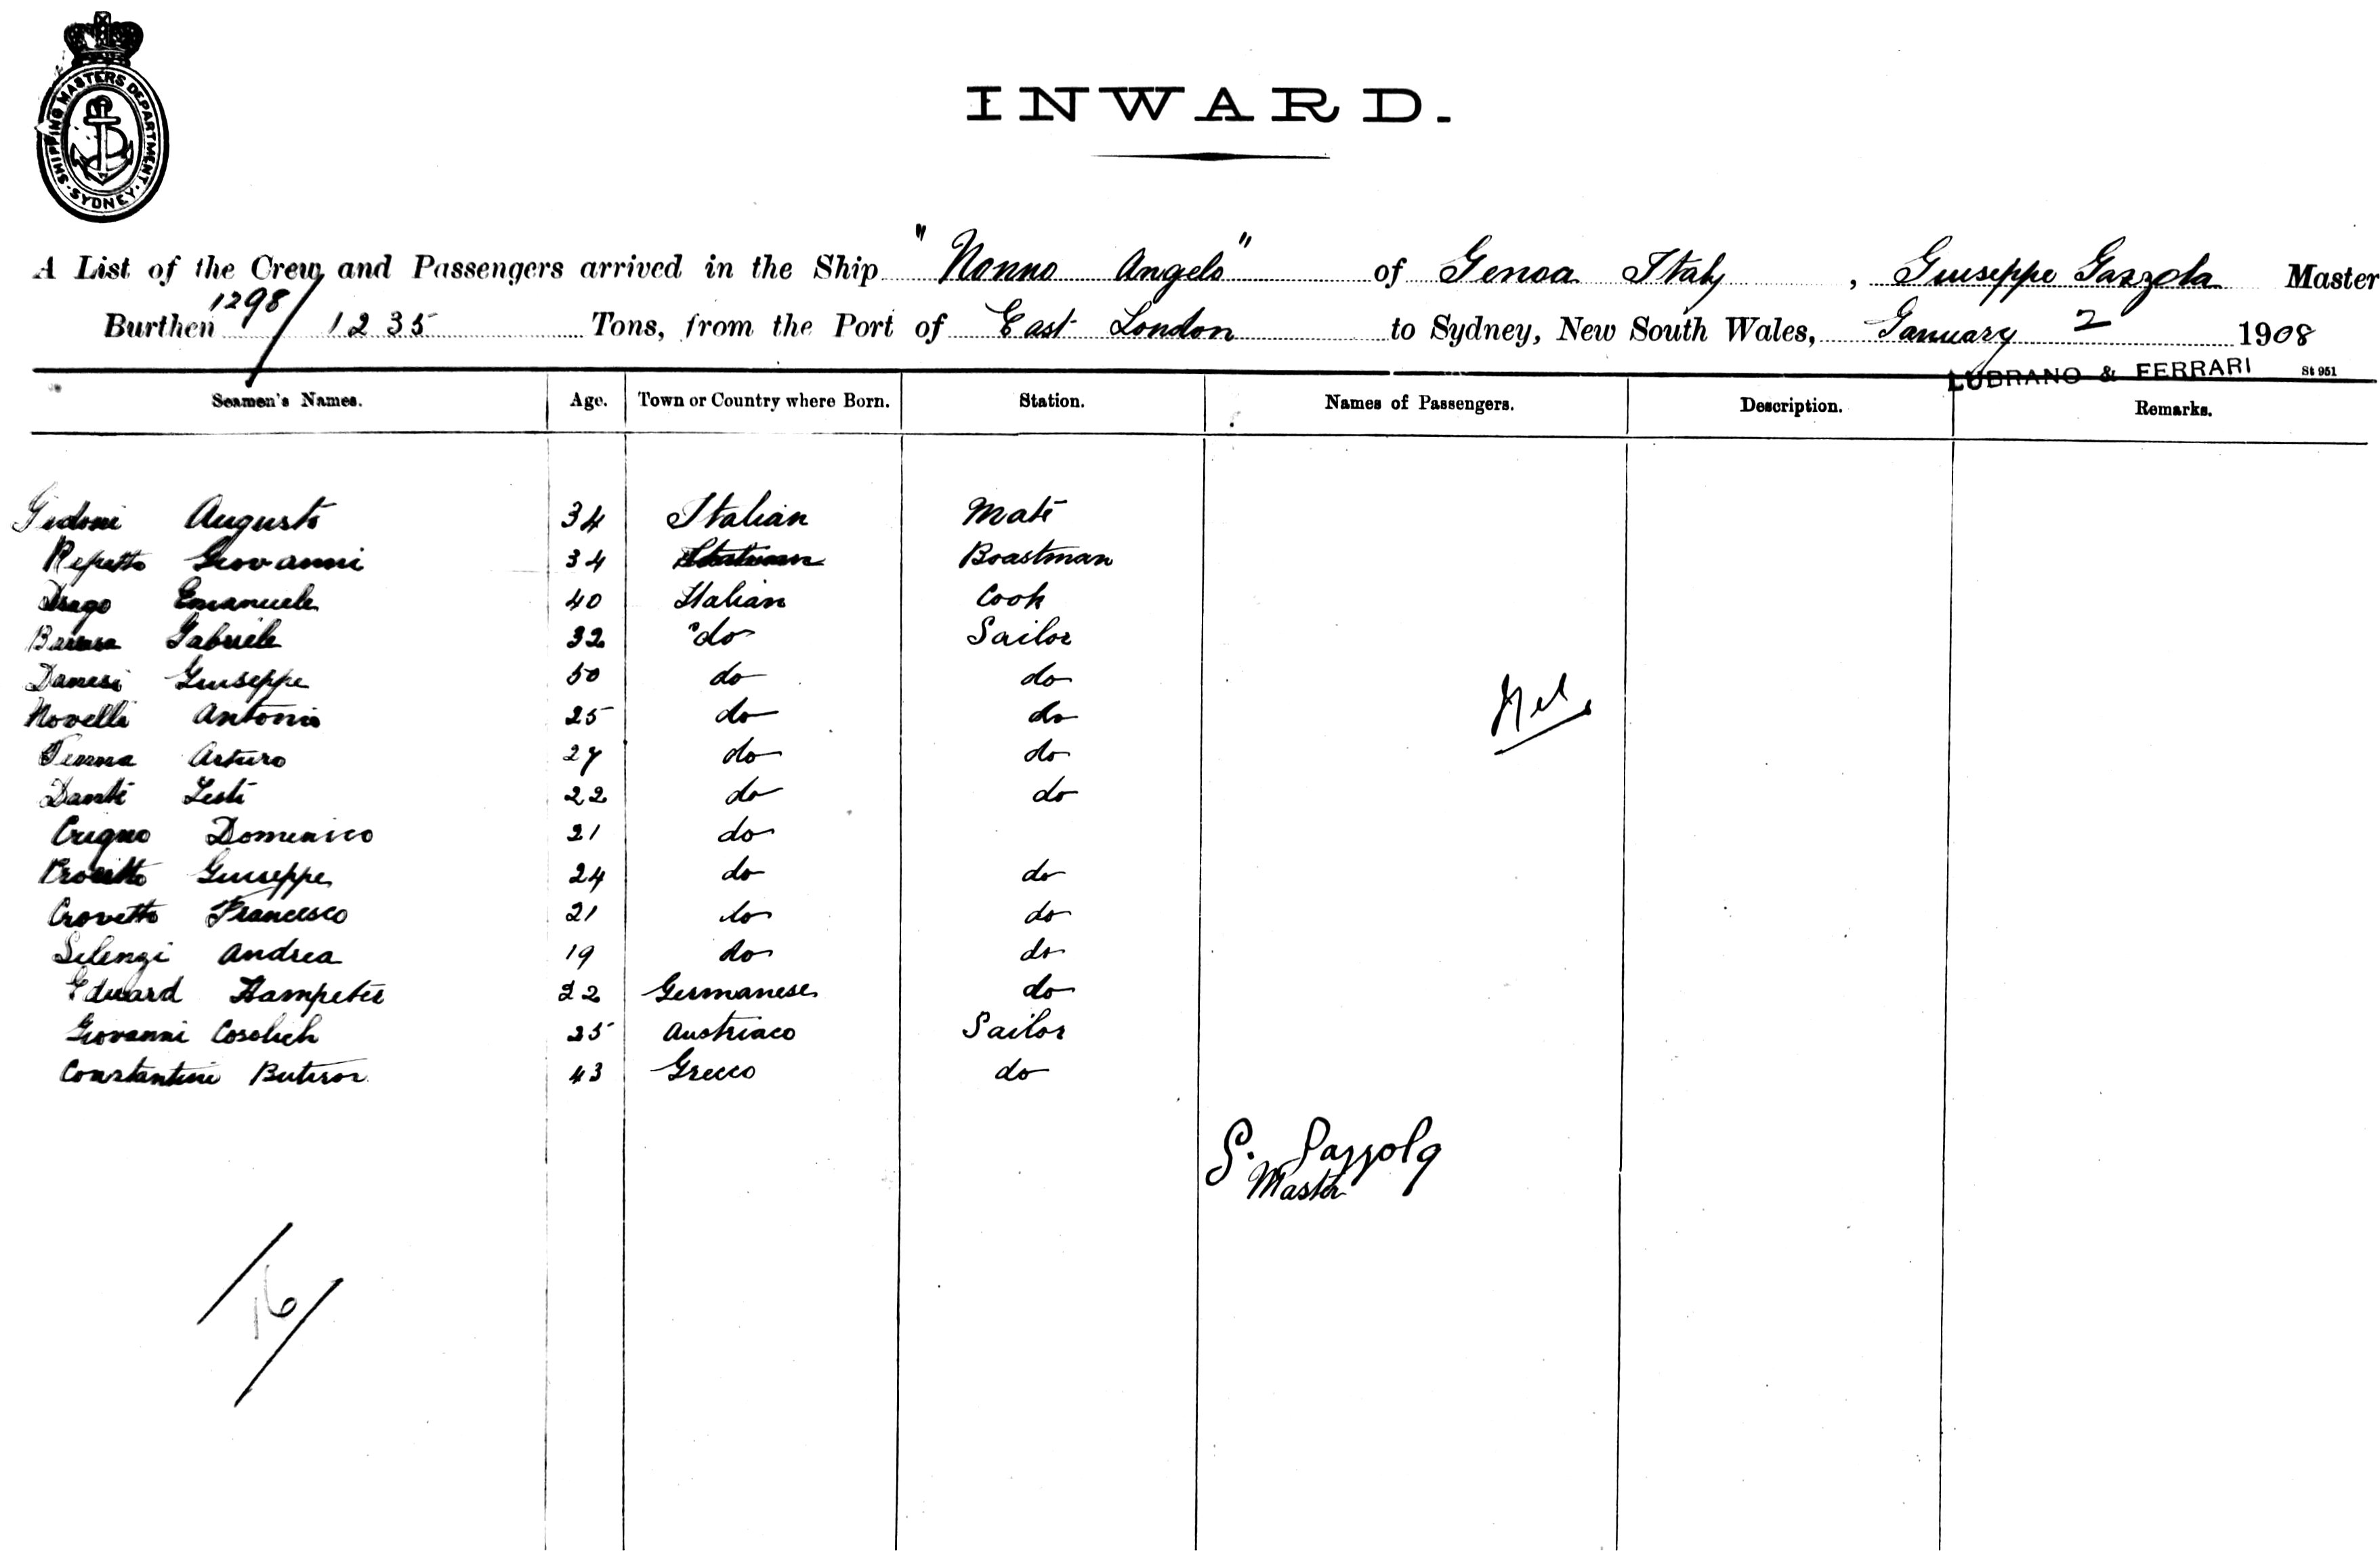 SHIPPING MASTERS DEPARTMENT · SYDNEY ·
INWARD.
A List of the Crew and Passengers arrived in the Ship "Nonno Angelo" of Genoa Italy, Giuseppe Gazzola Master
Burthen 1298/1235 Tons, from the Port of East London to Sydney, New South Wales, January 2 1908
LUBRANO & FERRARI St 951
Seamen's Names. Age. Town or Country where Born. Station. Names of Passengers. Description. Remarks.
Augusto 34 Italian Mate
Repetto Giovanni 34 Boastman
Drago Emanuele 40 Italian Cook
Gabriele 32 do Sailor
Danesi Giuseppe 50 do do
Novelli Antonio 25 do do
Arturo 27 do do
Dante Testi 22 do do
Domenico 21 do
Giuseppe 24 do do
Crovetto Francesco 21 do do
Silenzi Andrea 19 do do
Eduard Hampeter 22 Germanese do
Giovanni Cosolich 25 Austriaco Sailor
Constantini 43 Grecco do
Nil
G. Gazzola
Master
16